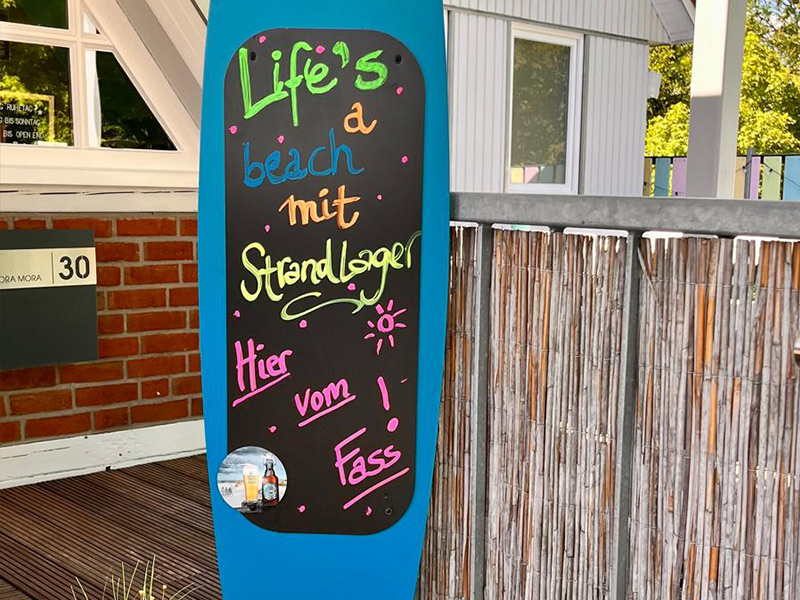 Life's
a
beach
mit
Strandlager
Hier
vom !
Fass
ORA MORA 30
RUHETAG
BIS SONNTAG
BIS OPEN END